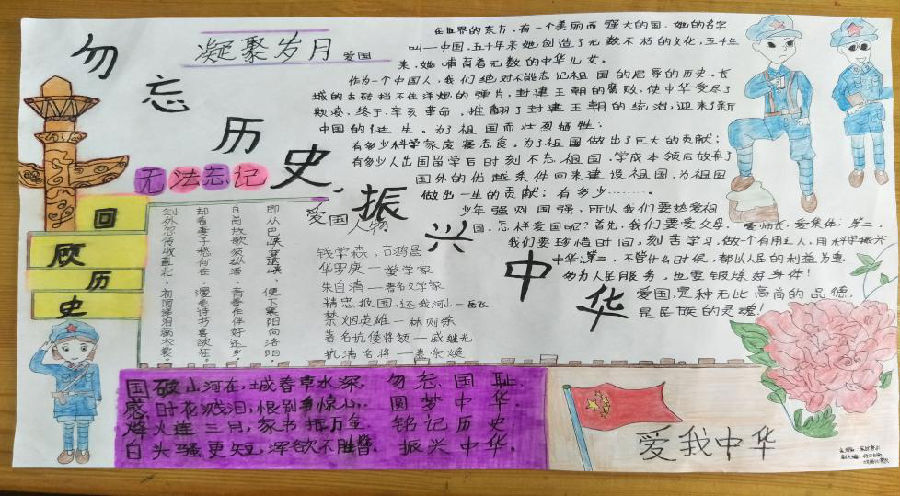 勿忘历史 振兴中华
凝聚岁月
爱国
在世界的东方,有一个美丽而强大的国,她的名字
叫—中国,五千年来她创造了无数不朽的文化,五千年
来,她哺育着无数的中华儿女。
作为一个中国人,我们绝对不能忘记祖国的屈辱的历史,长
城的古砖挡不住洋炮的弹片,封建王朝的腐败,使中华受尽了
欺凌,终于,辛亥革命,推翻了封建王朝的统治,迎来了新
中国的诞生。为了祖国而壮烈牺牲;
有多少科学家废寝忘食,为了祖国做出了巨大的贡献;
有多少人出国留学时刻不忘祖国,学成本领后放弃了
国外的优越条件回来建设祖国,为祖国
做出一生的贡献;有多少……
少年强则国强,所以我们要热爱祖
国,怎样爱国呢?首先,我们要爱父母,爱师长,爱集体;第二,
我们要珍惜时间,刻苦学习,做个有用之人,用科学振兴
中华;第三,不管什么时候,都以人民的利益为重
努力人民服务,也要锻炼好身体!
爱国,是种无比高尚的品德,
是民族的灵魂!
无法忘记
回顾历史
剑外忽传收蓟北,初闻涕泪满衣裳。
却看妻子愁何在,漫卷诗书喜欲狂。
白日放歌须纵酒,青春作伴好还乡。
即从巴峡穿巫峡,便下襄阳向洛阳。
爱国人物
钱学森,司马昌
华罗庚—数学家
朱自清—著名文学家
精忠报国,还我河山—岳飞
禁烟英雄—林则徐
著名抗倭将领—戚继光
抗清名将—袁崇焕
国破山河在,城春草木深。
感时花溅泪,恨别鸟惊心。
烽火连三月,家书抵万金。
白头搔更短,浑欲不胜簪。
勿忘国耻,
圆梦中华,
铭记历史
振兴中华,
爱我中华